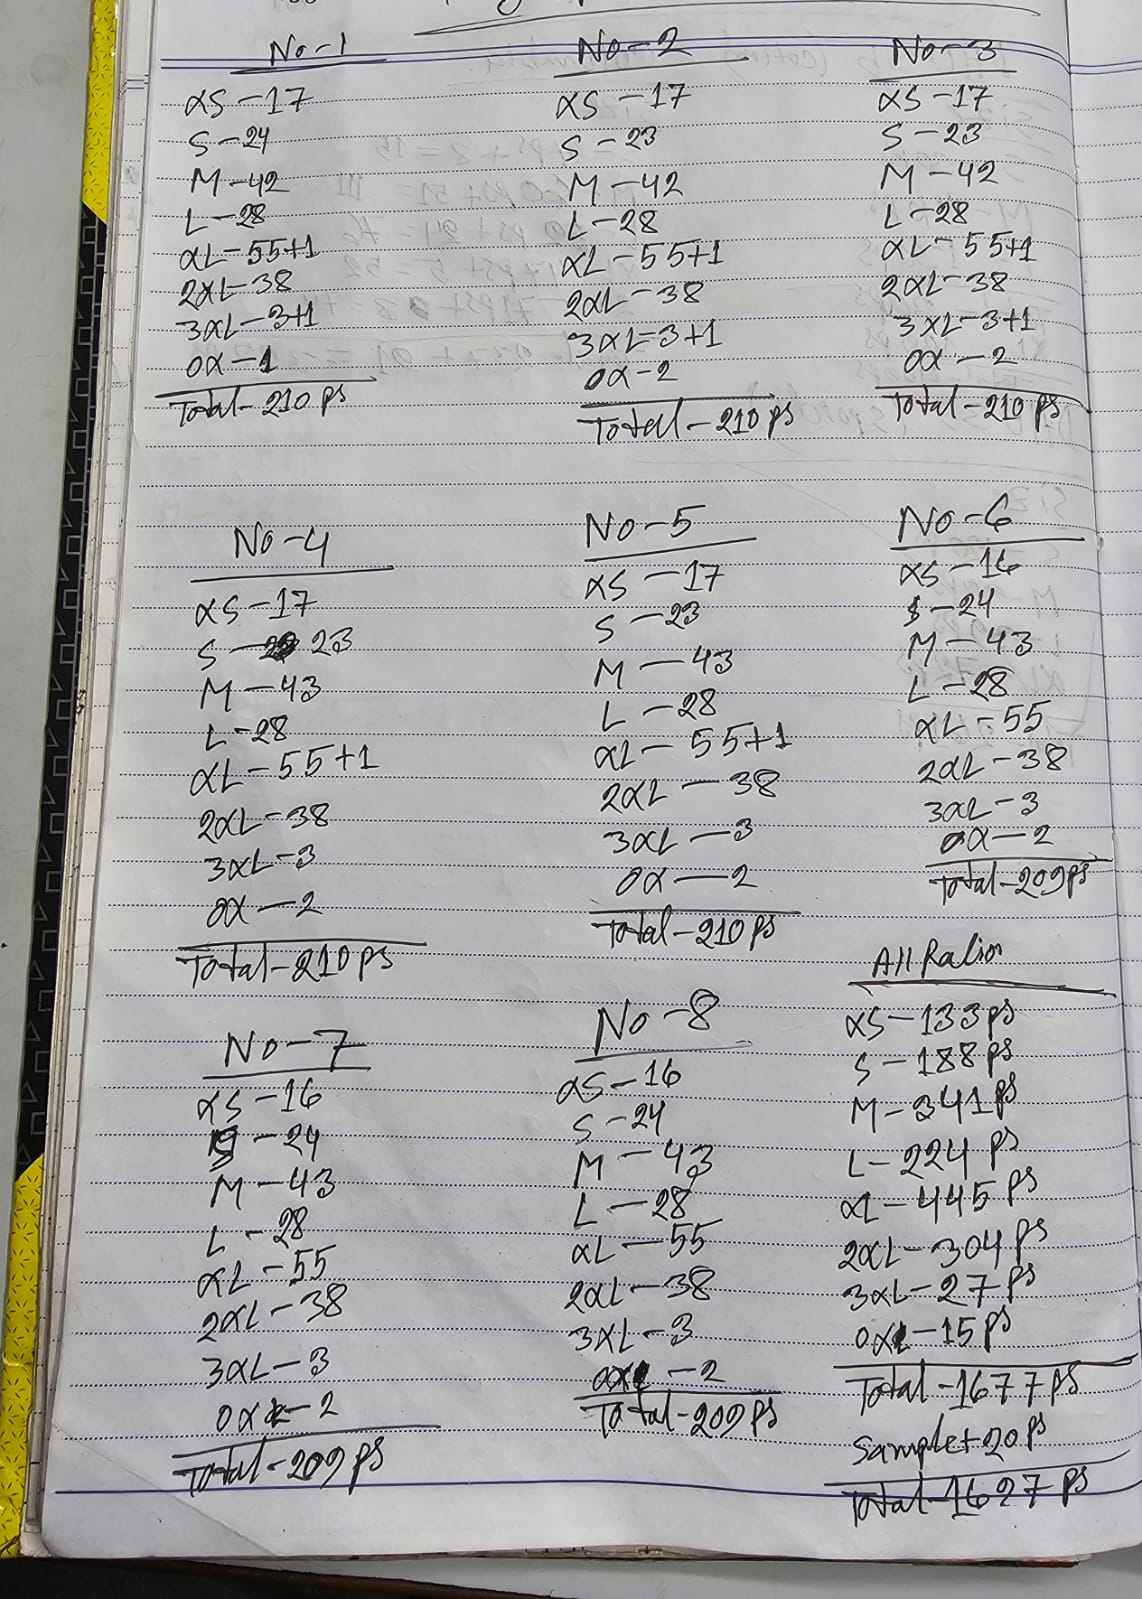 No-1
XS-17
S-24
M-42
L-28
XL-55+1
2XL-38
3XL-3+1
OX-1
Total-210 ps
No-2
XS-17
S-23
M-42
L-28
XL-55+1
2XL-38
3XL-3+1
OX-2
Total-210 ps
No-3
XS-17
S-23
M-42
L-28
XL-55+1
2XL-38
3XL-3+1
OX-2
Total-210 ps
No-4
XS-17
S-23
M-43
L-28
XL-55+1
2XL-38
3XL-3
OX-2
Total-210 ps
No-5
XS-17
S-23
M-43
L-28
XL-55+1
2XL-38
3XL-3
OX-2
Total-210 ps
No-6
XS-16
S-24
M-43
L-28
XL-55
2XL-38
3XL-3
OX-2
Total-209 ps
No-7
XS-16
S-24
M-43
L-28
XL-55
2XL-38
3XL-3
OX-2
Total-209 ps
No-8
XS-16
S-24
M-43
L-28
XL-55
2XL-38
3XL-3
OX-2
Total-209 ps
All
XS-133 ps
S-188 ps
M-341 ps
L-224 ps
XL-445 ps
2XL-304 ps
3XL-27 ps
OX-15 ps
Total-1677 ps
Sample+20 ps
Total-1627 ps